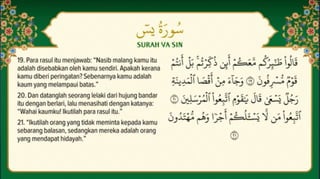 سُورَةُ يسٓ
SURAH YA SIN
19. Para rasul itu menjawab: "Nasib malang kamu itu
adalah disebabkan oleh kamu sendiri. Apakah kerana
kamu diberi peringatan? Sebenarnya kamu adalah
kaum yang melampaui batas."
20. Dan datanglah seorang lelaki dari hujung bandar
itu dengan berlari, lalu menasihati dengan katanya:
"Wahai kaumku! Ikutilah para rasul itu."
21. "Ikutilah orang yang tidak meminta kepada kamu
sebarang balasan, sedangkan mereka adalah orang
yang mendapat hidayah."
قَالُوا۟ طَـٰٓئِرُكُم مَّعَكُمْ أَئِن ذُكِّرْتُم بَلْ أَنتُمْ
قَوْمٌ مُّسْرِفُونَ ١٩ وَجَآءَ مِنْ أَقْصَا ٱلْمَدِينَةِ
رَجُلٌ يَسْعَىٰ قَالَ يَـٰقَوْمِ ٱتَّبِعُوا۟ ٱلْمُرْسَلِينَ ٢٠
ٱتَّبِعُوا۟ مَن لَّا يَسْـَٔلُكُمْ أَجْرًا وَهُم مُّهْتَدُونَ
٢١